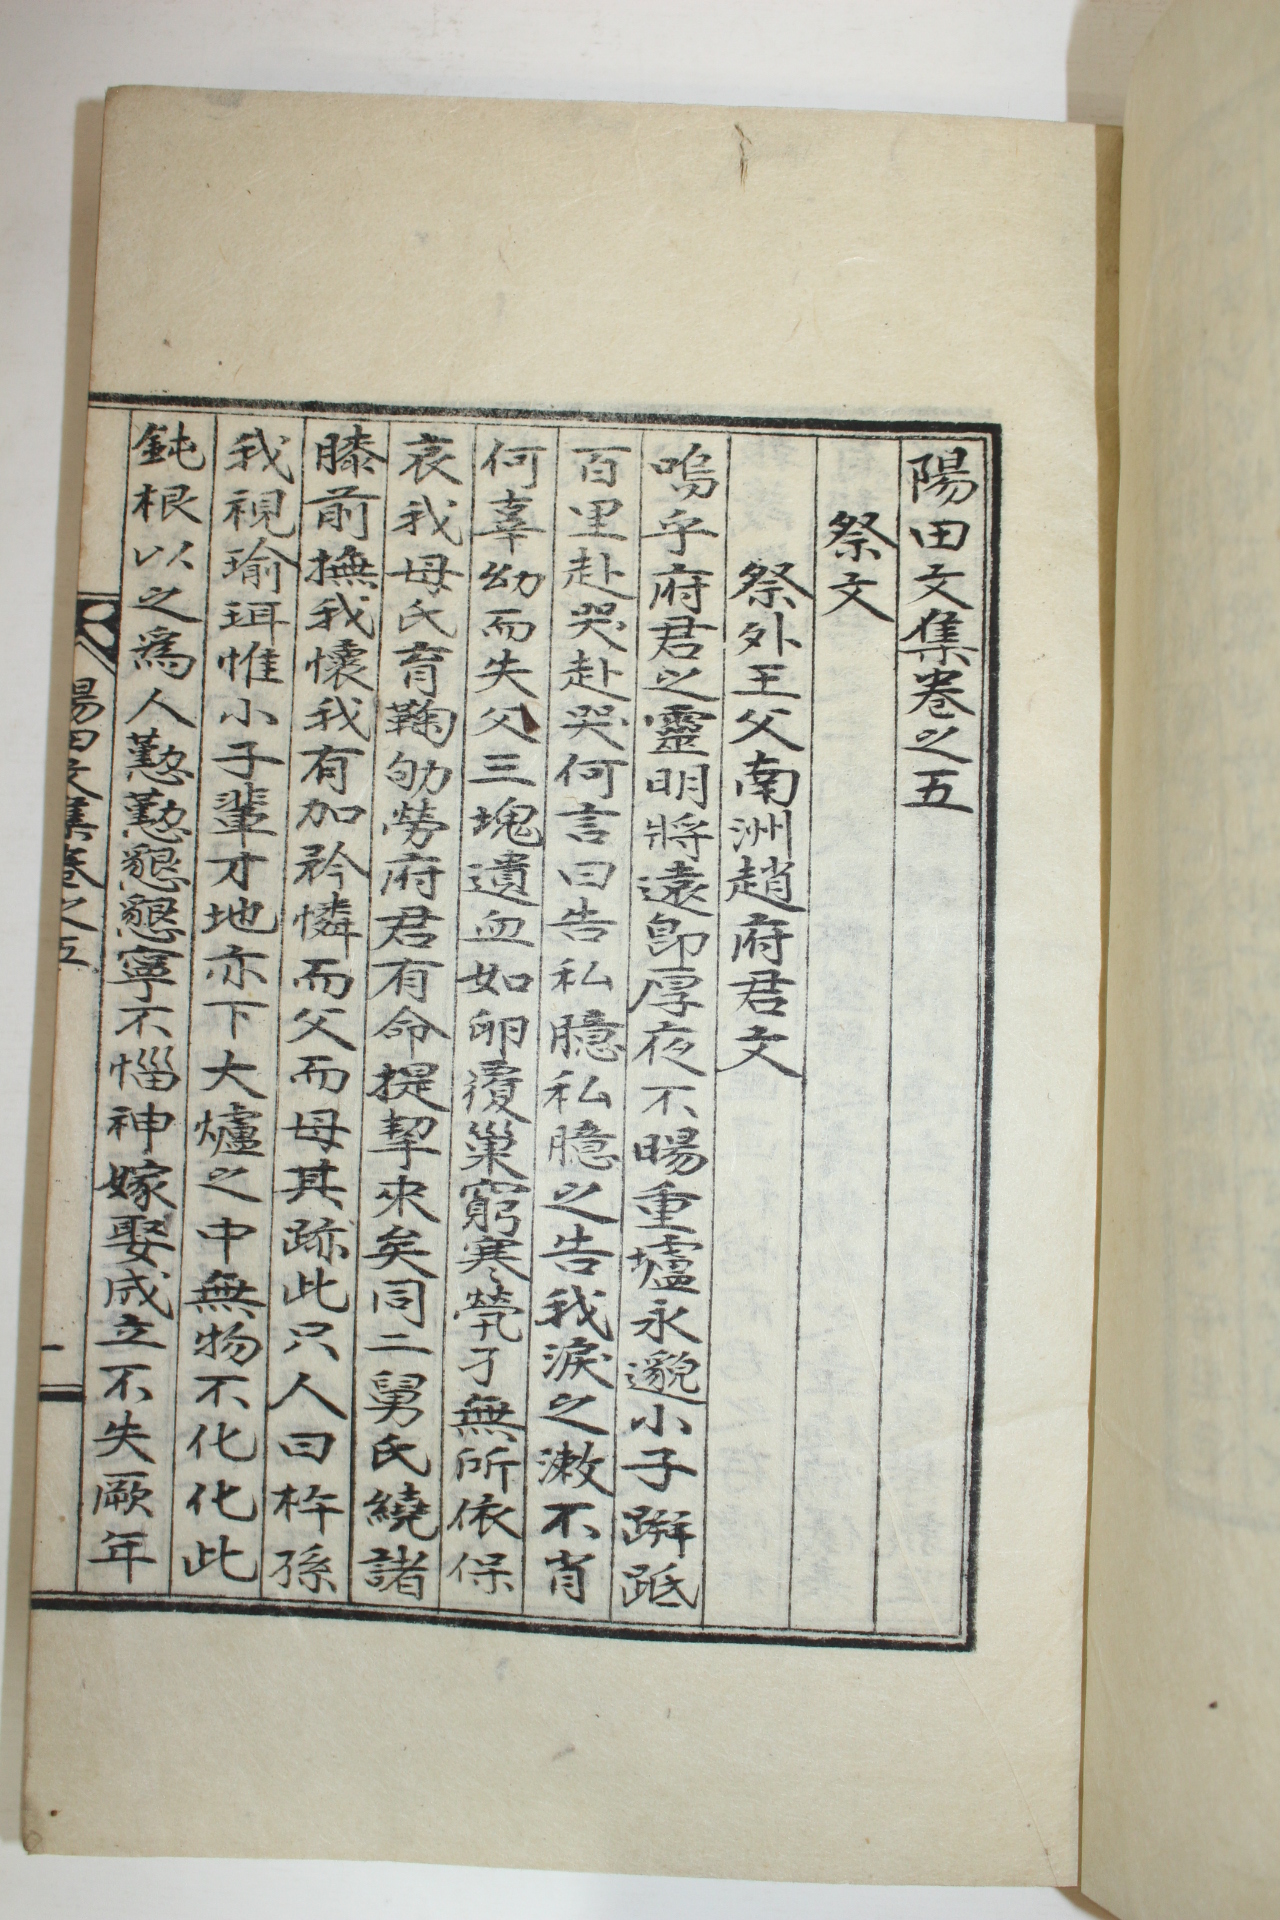 陽田文集卷之五
祭文
祭外王父南洲趙府君文
嗚乎府君之靈明將遠卽厚夜不暘重壚永邈小子跰胝
百里赴哭赴哭何言曰告私臆私臆之告我淚之漱不肖
何辜幼而失父三塊遺血如卵覆巢窮寒煢孑無所依保
哀我母氏育鞠劬勞府君有命提挈來矣同二舅氏繞諸
膝前撫我懷我有加矜憐而父而母其跡此只人曰杵孫
我視瑜珥惟小子輩才地亦下大爐之中無物不化化此
鈍根以之爲人懃懃懇懇寧不惱神嫁娶成立不失厥年
陽田文集卷之五 一